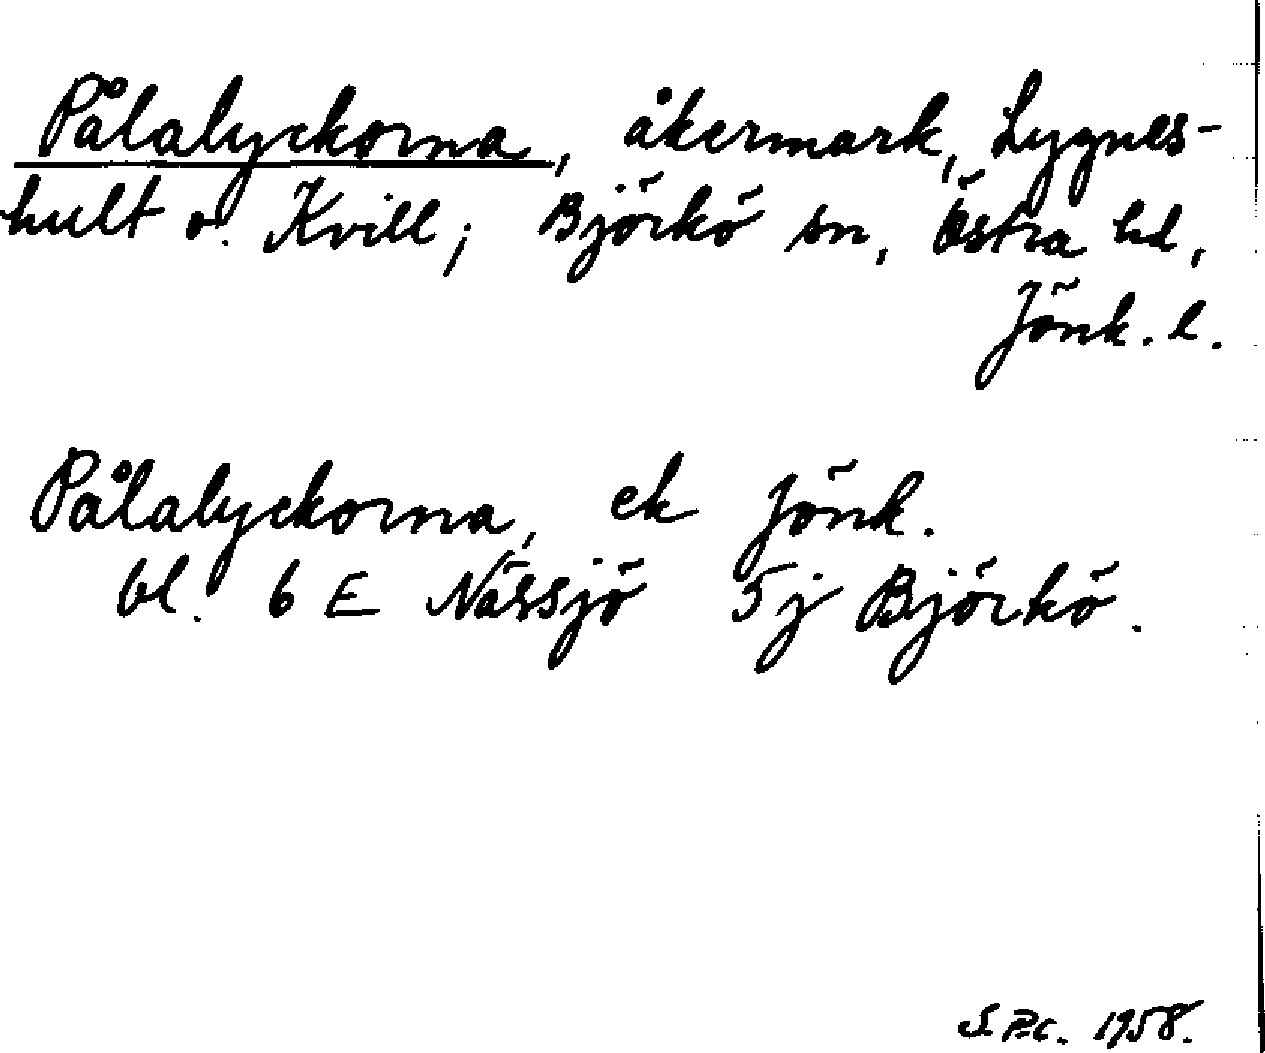 Pålalyckorna, åkermark, Lygnes-
hult o. Kvill; Björkö sn, Östra hd,
Jönk. l.
Pålalyckorna, ek Jönk.
bl. 6 E Nässjö 5j Björkö.
1958.